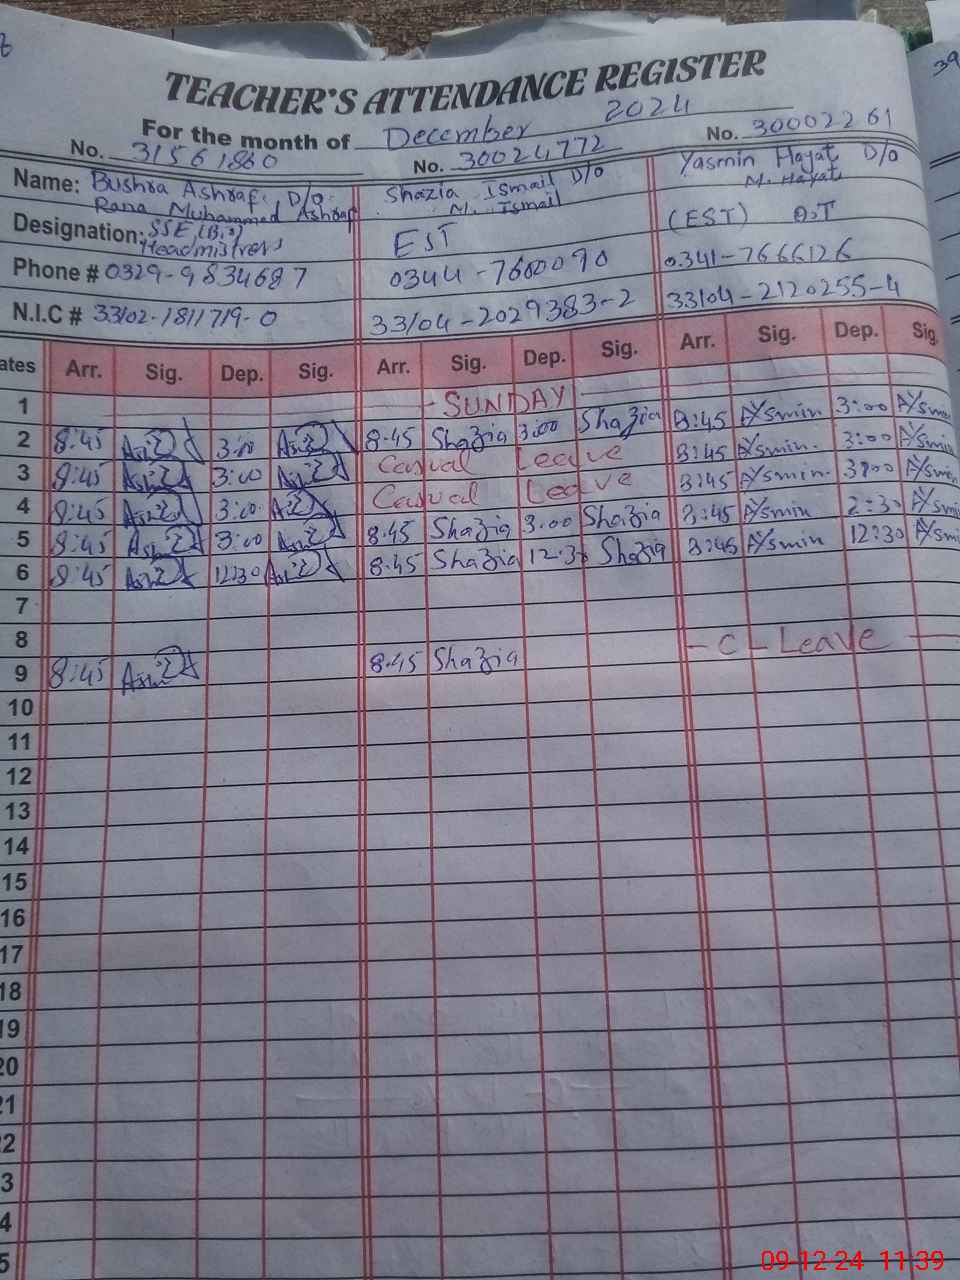 39
TEACHER'S ATTENDANCE REGISTER
For the month of December 2024
No. 31561860 No. 30024772 No. 30002261
Name: Bushra Ashraf D/O Shazia Ismail D/o Yasmin Hayat D/o
Rana Muhammad Ashraf M. Ismail M. Hayat
Designation: SSE EST (EST)
Headmistress
Phone # 0329-9834687 0344-7600090 0341-7666126
N.I.C # 33102-1811719-0 33104-2029383-2 33104-2120255-4
ates Arr. Sig. Dep. Sig. Arr. Sig. Dep. Sig. Arr. Sig. Dep. Sig.
1 SUNDAY
2 8:45 3:00 8.45 Shazia 3.00 Shazia 8:45 A/Smin 3:00 A/Smin
3 8:45 3:00 Casual Leave 8:45 A/Smin 3:00 A/Smin
4 8:45 3:00 Casual Leave 8:45 A/Smin 3:00 A/Smin
5 8:45 3:00 8.45 Shazia 3.00 Shazia 8:45 A/Smin 2:30 A/Smin
6 8:45 12:30 8.45 Shazia 12.30 Shazia 8:45 A/Smin 12:30 A/Smin
7
8
9 8:45 8.45 Shazia - C - Leave -
10
11
12
13
14
15
16
17
18
19
20
21
2
3
4
5
09-12-24 11:39